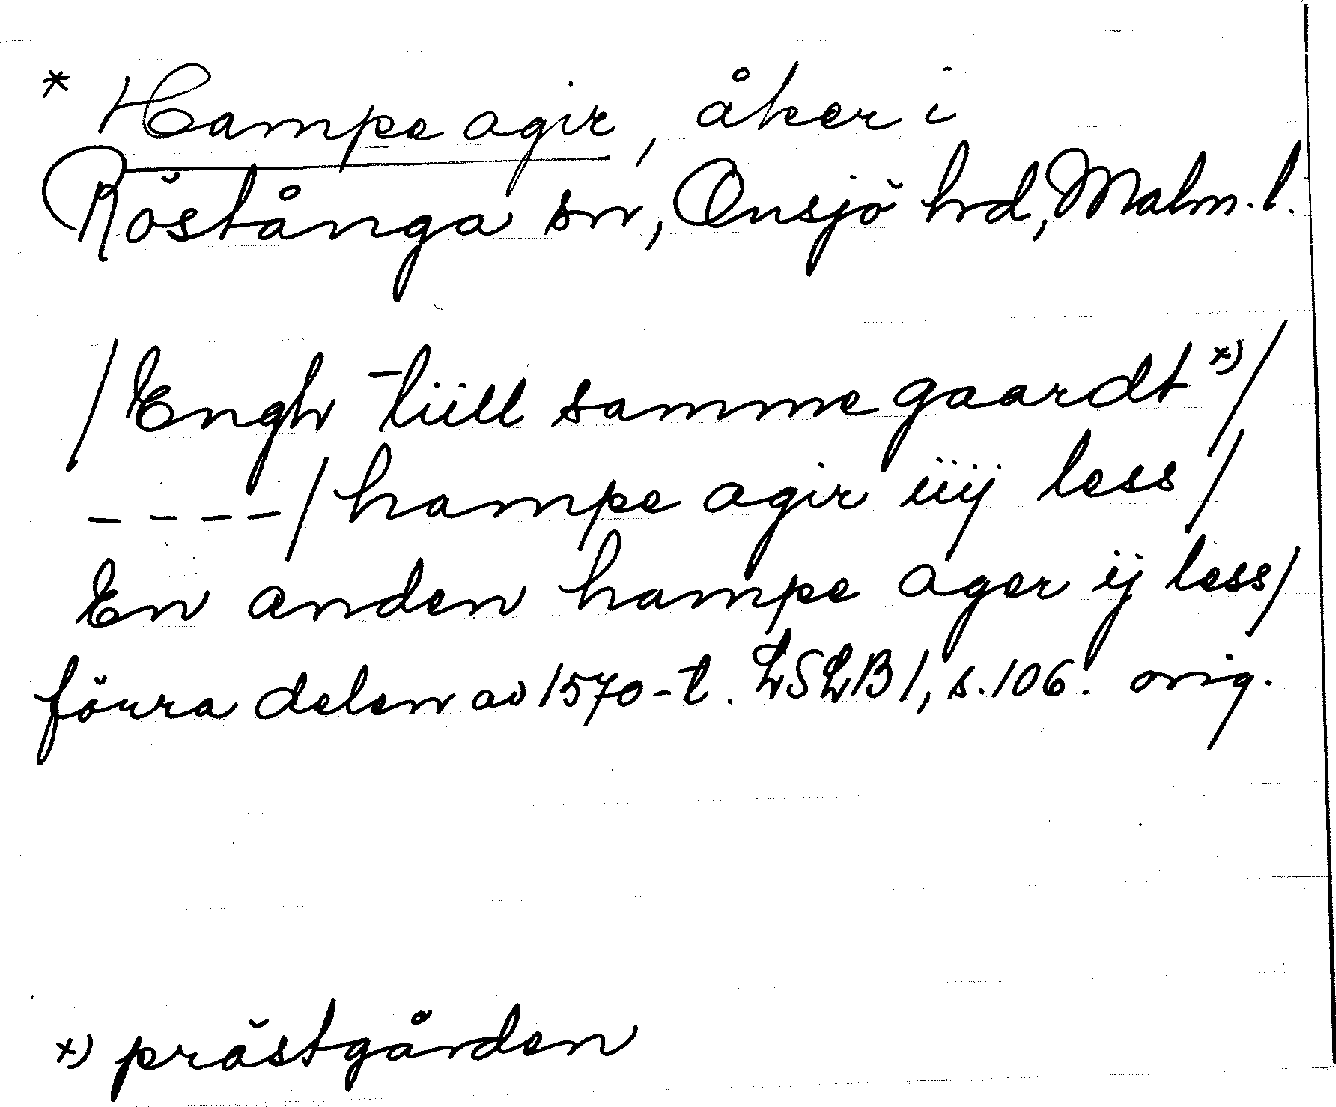 * Hampe agir, åker i
Röstånga sn, Onsjö hd, Malm. l.
/Engh tiill samme gaardt x)/
----/hampe agir iiij less/
En anden hampe ager ij less/
förra delen av 1570-t. LSLB 1, s. 106. orig.
x) prästgården